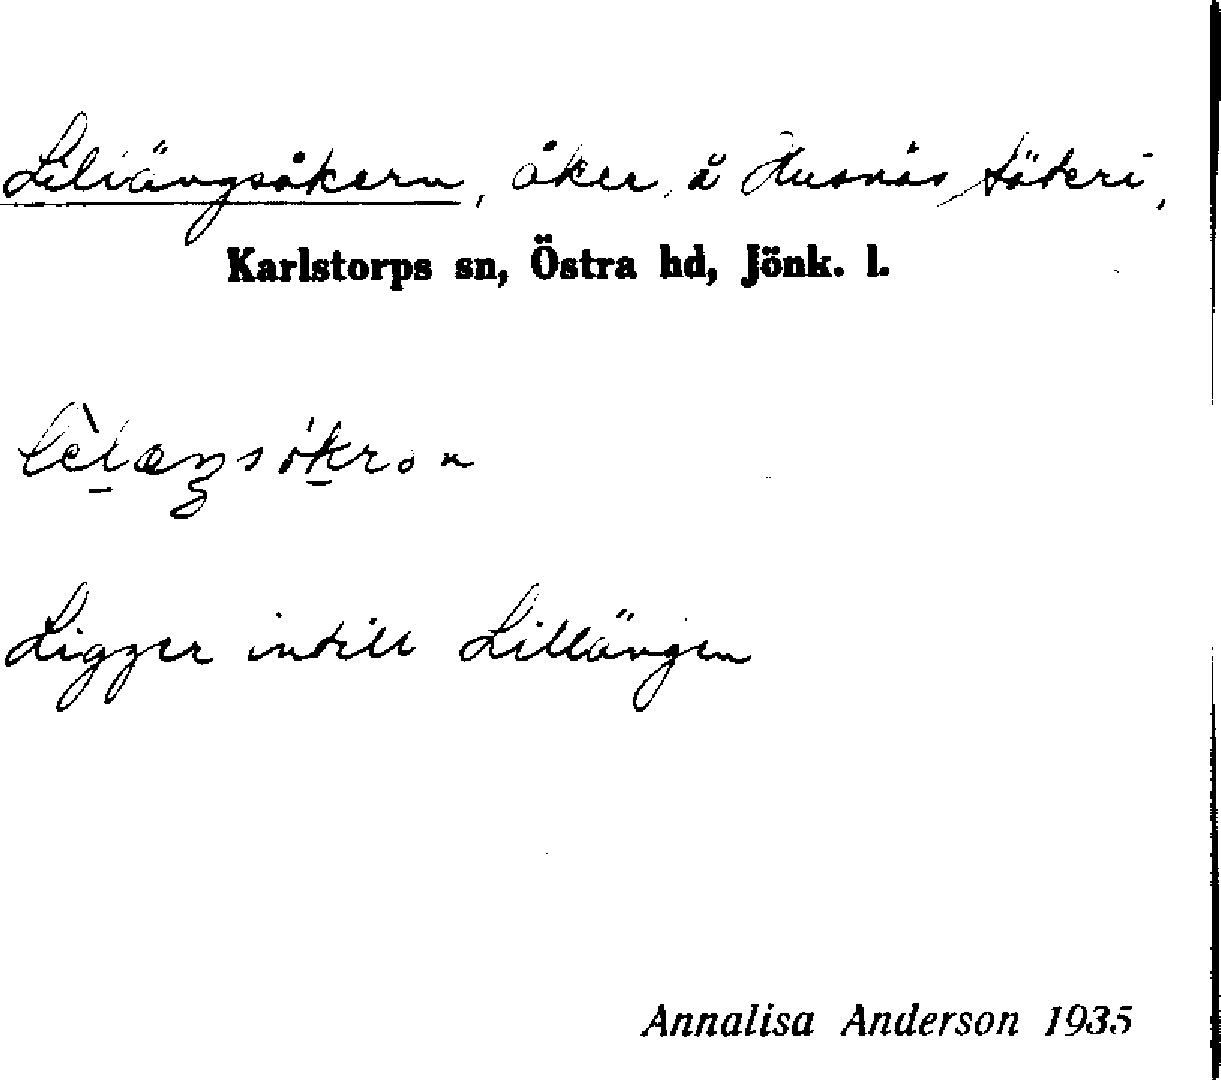 Lillängsåkern, åker å Husnäs Säteri,
Karlstorps sn, Östra hd, Jönk. l.
Ligger intill Lillängen
Annalisa Anderson 1935